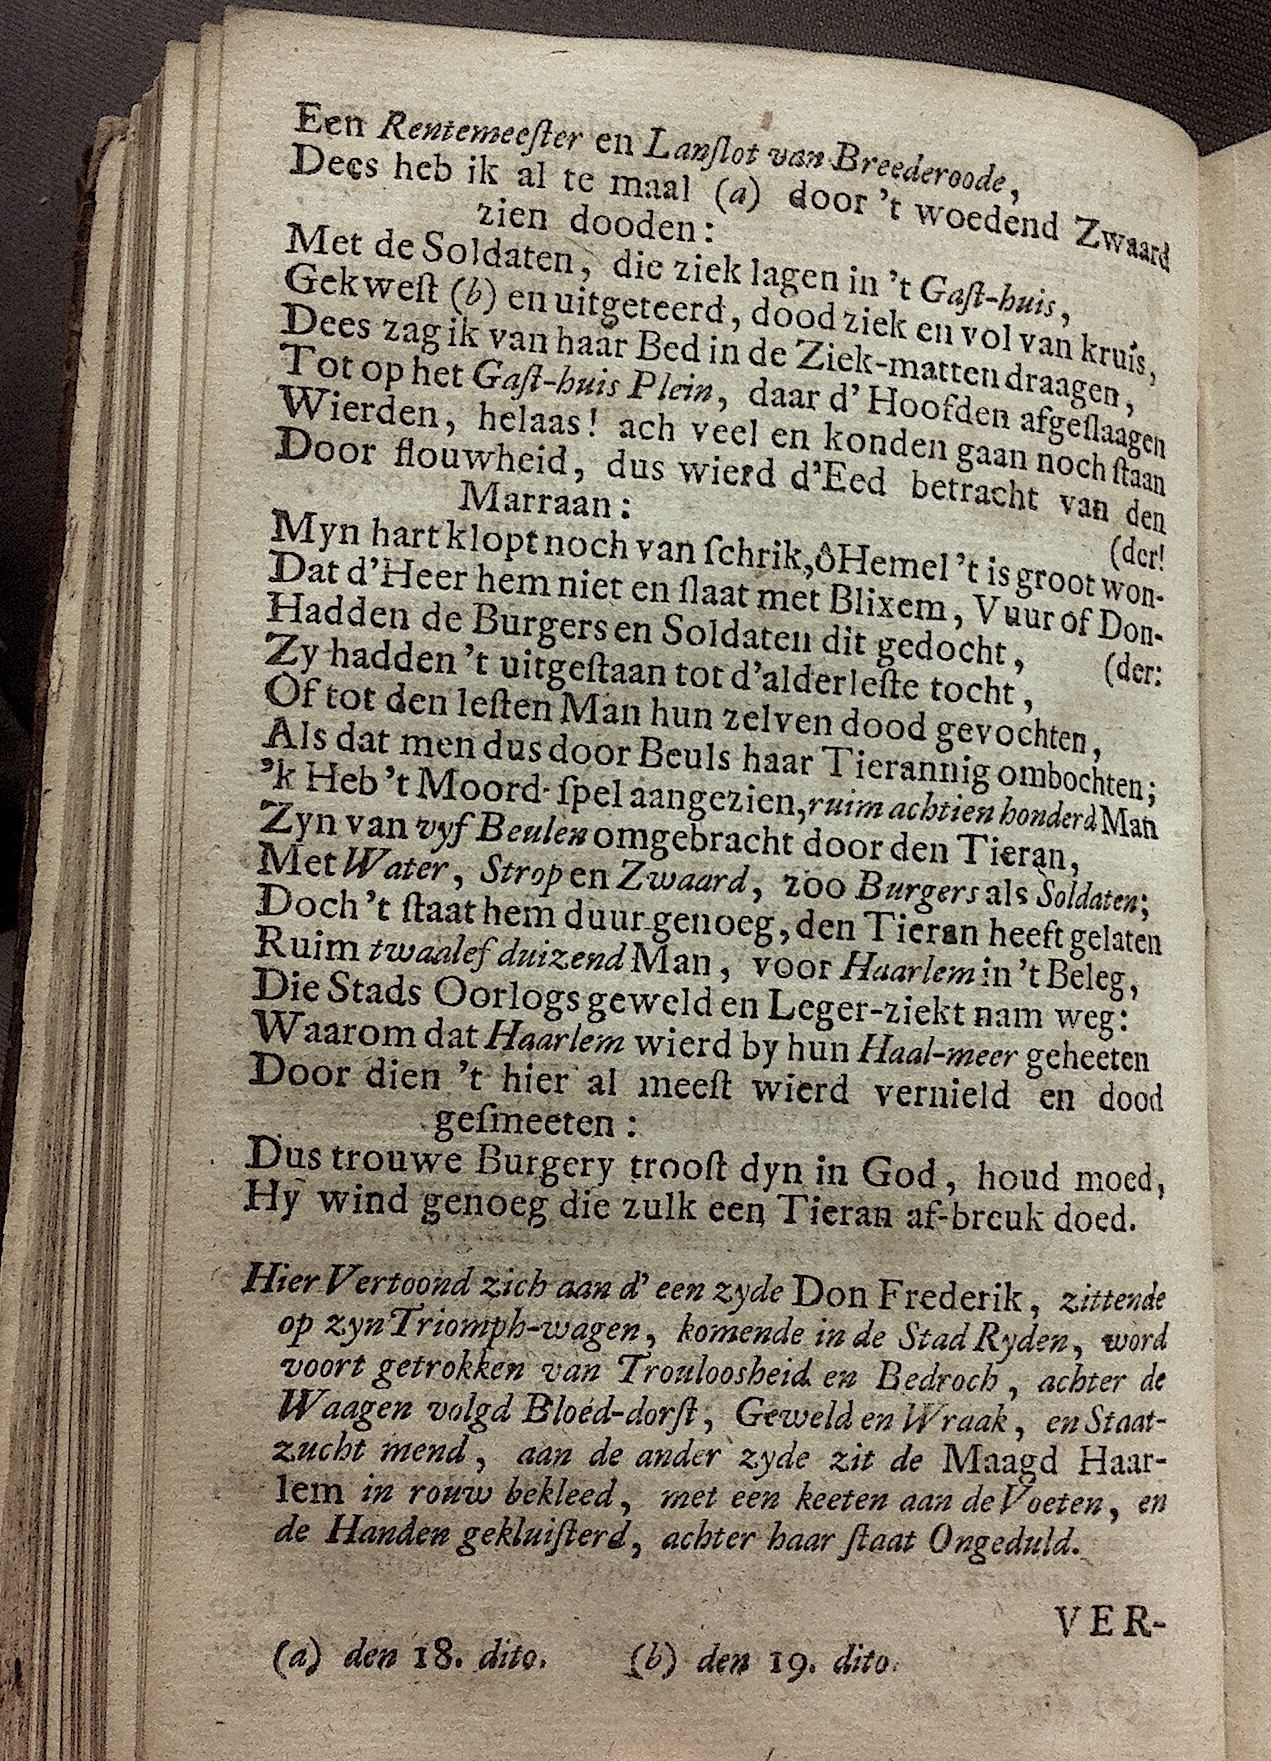 Een Rentemeeſter en Lanſlot van Breederoode,
Dees heb ik al te maal (a) door 't woedend Zwaard
zien dooden:
Met de Soldaten, die ziek lagen in 't Gaſt-huis,
Gekweſt (b) en uitgeteerd, dood ziek en vol van kruis,
Dees zag ik van haar Bed in de Ziek-matten draagen,
Tot op het Gaſt-huis Plein, daar d' Hoofden afgeſlaagen
Wierden, helaas! ach veel en konden gaan noch ſtaan
Door flouwheid, dus wierd d'Eed betracht van den
Marraan:
(der!
Myn hart klopt noch van ſchrik, ô Hemel 't is groot won-
Dat d'Heer hem niet en ſlaat met Blixem, Vuur of Don-
(der:
Hadden de Burgers en Soldaten dit gedocht,
Zy hadden 't uitgeſtaan tot d'alderleſte tocht,
Of tot den leſten Man hun zelven dood gevochten,
Als dat men dus door Beuls haar Tierannig ombochten;
'k Heb 't Moord-ſpel aangezien, ruim achtien honderd Man
Zyn van vyf Beulen omgebracht door den Tieran,
Met Water, Strop en Zwaard, zoo Burgers als Soldaten;
Doch 't ſtaat hem duur genoeg, den Tieran heeft gelaten
Ruim twaalef duizend Man, voor Haarlem in 't Beleg,
Die Stads Oorlogs geweld en Leger-ziekt nam weg:
Waarom dat Haarlem wierd by hun Haal-meer geheeten
Door dien 't hier al meeſt wierd vernield en dood
geſmeeten:
Dus trouwe Burgery trooſt dyn in God, houd moed,
Hy wind genoeg die zulk een Tieran af-breuk doed.
Hier Vertoond zich aan d' een zyde Don Frederik, zittende
op zyn Triomph-wagen, komende in de Stad Ryden, word
voort getrokken van Trouloosheid en Bedroch, achter de
Waagen volgd Bloed-dorſt, Geweld en Wraak, en Staat-
zucht mend, aan de ander zyde zit de Maagd Haar-
lem in rouw bekleed, met een keeten aan de Voeten, en
de Handen gekluiſterd, achter haar ſtaat Ongeduld.
VER-
(a) den 18. dito. (b) den 19. dito.